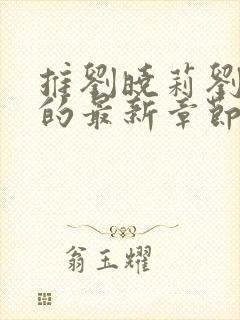 推劉曉莉劉
的最新章節
翁玉耀